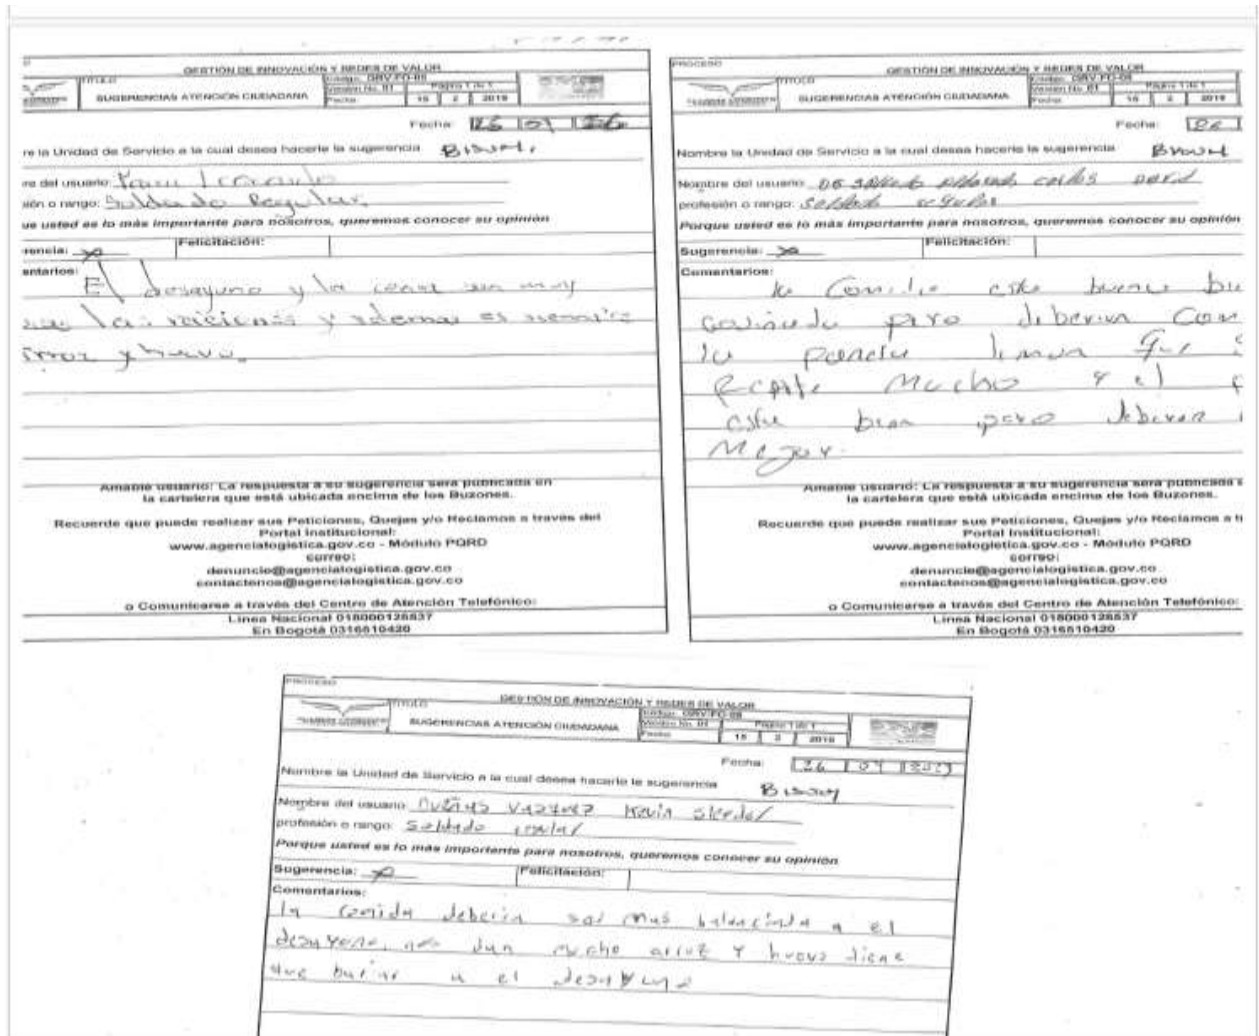 GESTIÓN DE INNOVACIÓN Y REDES DE VALOR
TITULO
Código: GRV-FO-08
SUGERENCIAS ATENCIÓN CIUDADANA
Versión No. 01
Página 1 de 1
Fecha: 15 2 2019
Fecha: 26 07
re la Unidad de Servicio a la cual desea hacerle la sugerencia
re del usuario:
sión o rango: Soldado Regular
ue usted es lo más importante para nosotros, queremos conocer su opinión
rencia: x
Felicitación:
entarios:
El desayuno y la cena son muy
las raciones y ademas es siempre
arroz y huevo.
Amable usuario: La respuesta a su sugerencia será publicada en
la cartelera que está ubicada encima de los Buzones.
Recuerde que puede realizar sus Peticiones, Quejas y/o Reclamos a través del
Portal Institucional:
www.agencialogistica.gov.co - Módulo PQRD
correo:
denuncie@agencialogistica.gov.co
contactenos@agencialogistica.gov.co
o Comunicarse a través del Centro de Atención Telefónico:
Línea Nacional 018000126537
En Bogotá 0316510420
PROCESO
GESTIÓN DE INNOVACIÓN Y REDES DE VALOR
TITULO
Código: GRV-FO-08
SUGERENCIAS ATENCIÓN CIUDADANA
Versión No. 01
Página 1 de 1
Fecha: 15 2 2019
Fecha:
Nombre la Unidad de Servicio a la cual desea hacerle la sugerencia
Nombre del usuario: carlos David
profesión o rango: Soldado regular
Porque usted es lo más importante para nosotros, queremos conocer su opinión
Sugerencia: x
Felicitación:
Comentarios:
la Comida esta buena
pero deberian
la panela limon que
Mucho y el
esta bien pero deberan
Mejor.
Amable usuario: La respuesta a su sugerencia será publicada e
la cartelera que está ubicada encima de los Buzones.
Recuerde que puede realizar sus Peticiones, Quejas y/o Reclamos a tr
Portal Institucional:
www.agencialogistica.gov.co - Módulo PQRD
correo:
denuncie@agencialogistica.gov.co
contactenos@agencialogistica.gov.co
o Comunicarse a través del Centro de Atención Telefónico:
Línea Nacional 018000126537
En Bogotá 0316510420
PROCESO
GESTIÓN DE INNOVACIÓN Y REDES DE VALOR
TITULO
Código: GRV-FO-08
SUGERENCIAS ATENCIÓN CIUDADANA
Versión No. 01
Página 1 de 1
Fecha: 15 2 2019
Fecha: 26 07
Nombre la Unidad de Servicio a la cual desea hacerle la sugerencia
Nombre del usuario: Kevin
profesión o rango: Soldado regular
Porque usted es lo más importante para nosotros, queremos conocer su opinión
Sugerencia: x
Felicitación:
Comentarios:
la comida deberia ser mas balanciada a el
desayuno, nos dan mucho arroz y huevo tiene
que bariar a el desayuno